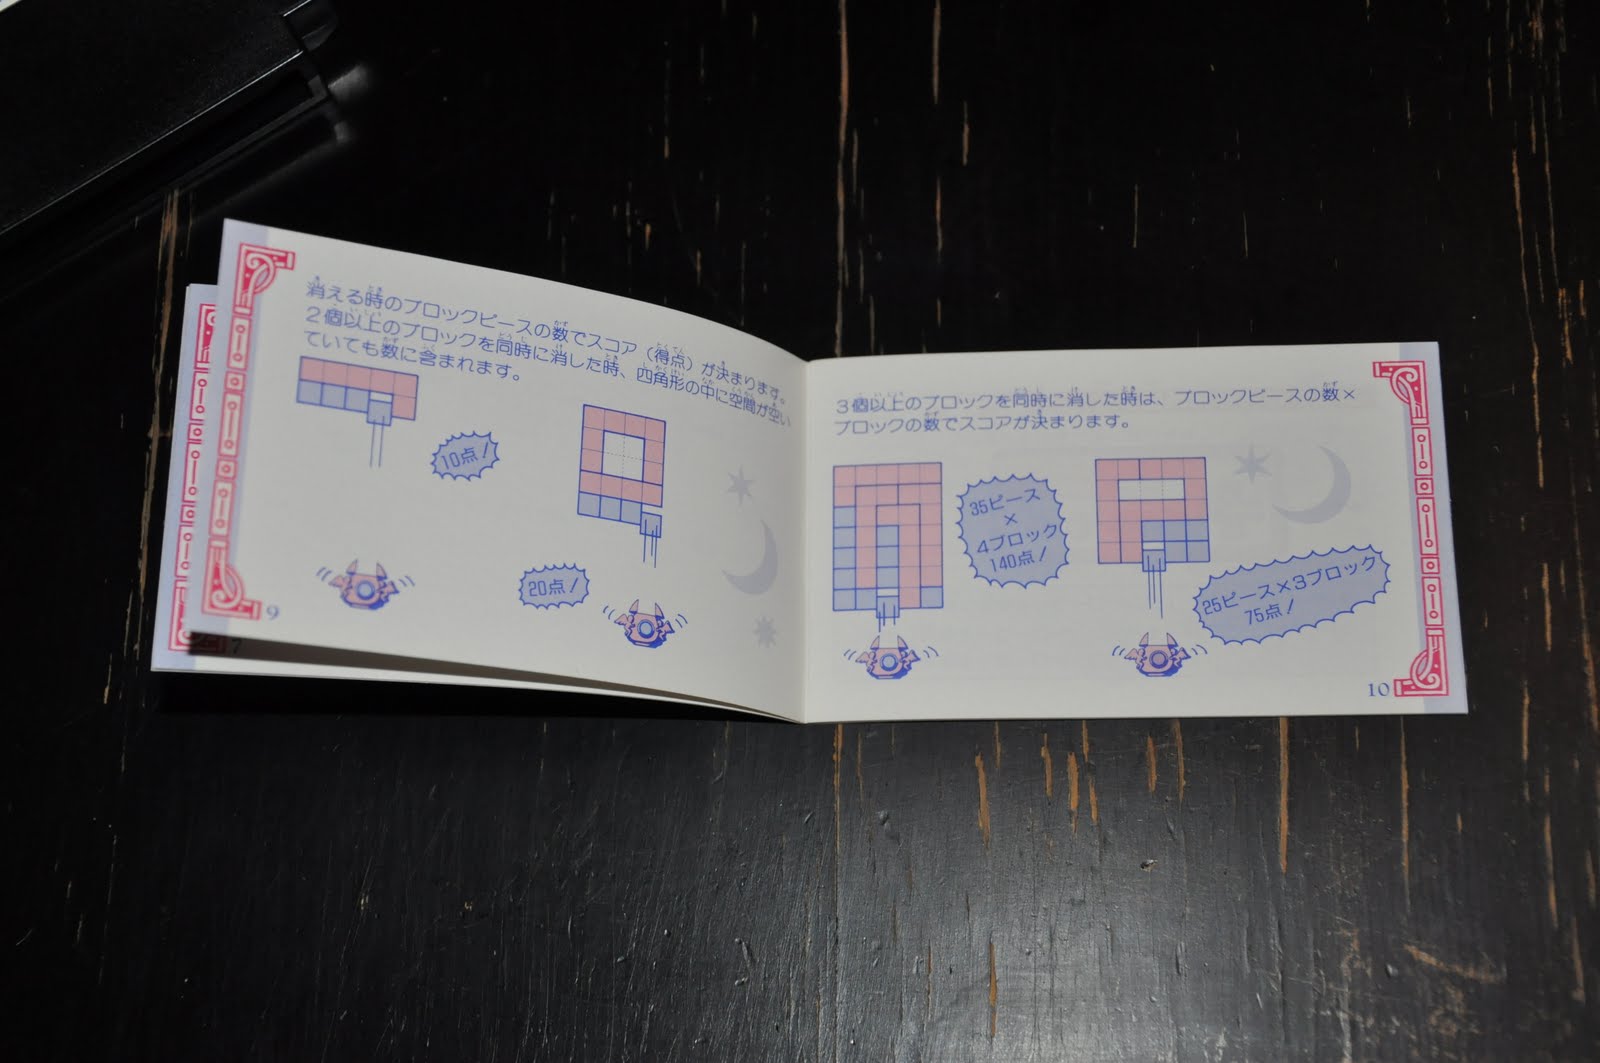 消える時のブロックピースの数でスコア（得点）が決まります。
2個以上のブロックを同時に消した時、四角形の中に空間が空い
ていても数に含まれます。
10点！
20点！
9
7
3個以上のブロックを同時に消した時は、ブロックピースの数×
ブロックの数でスコアが決まります。
35ピース
×
4ブロック
140点！
25ピース×3ブロック
75点！
10